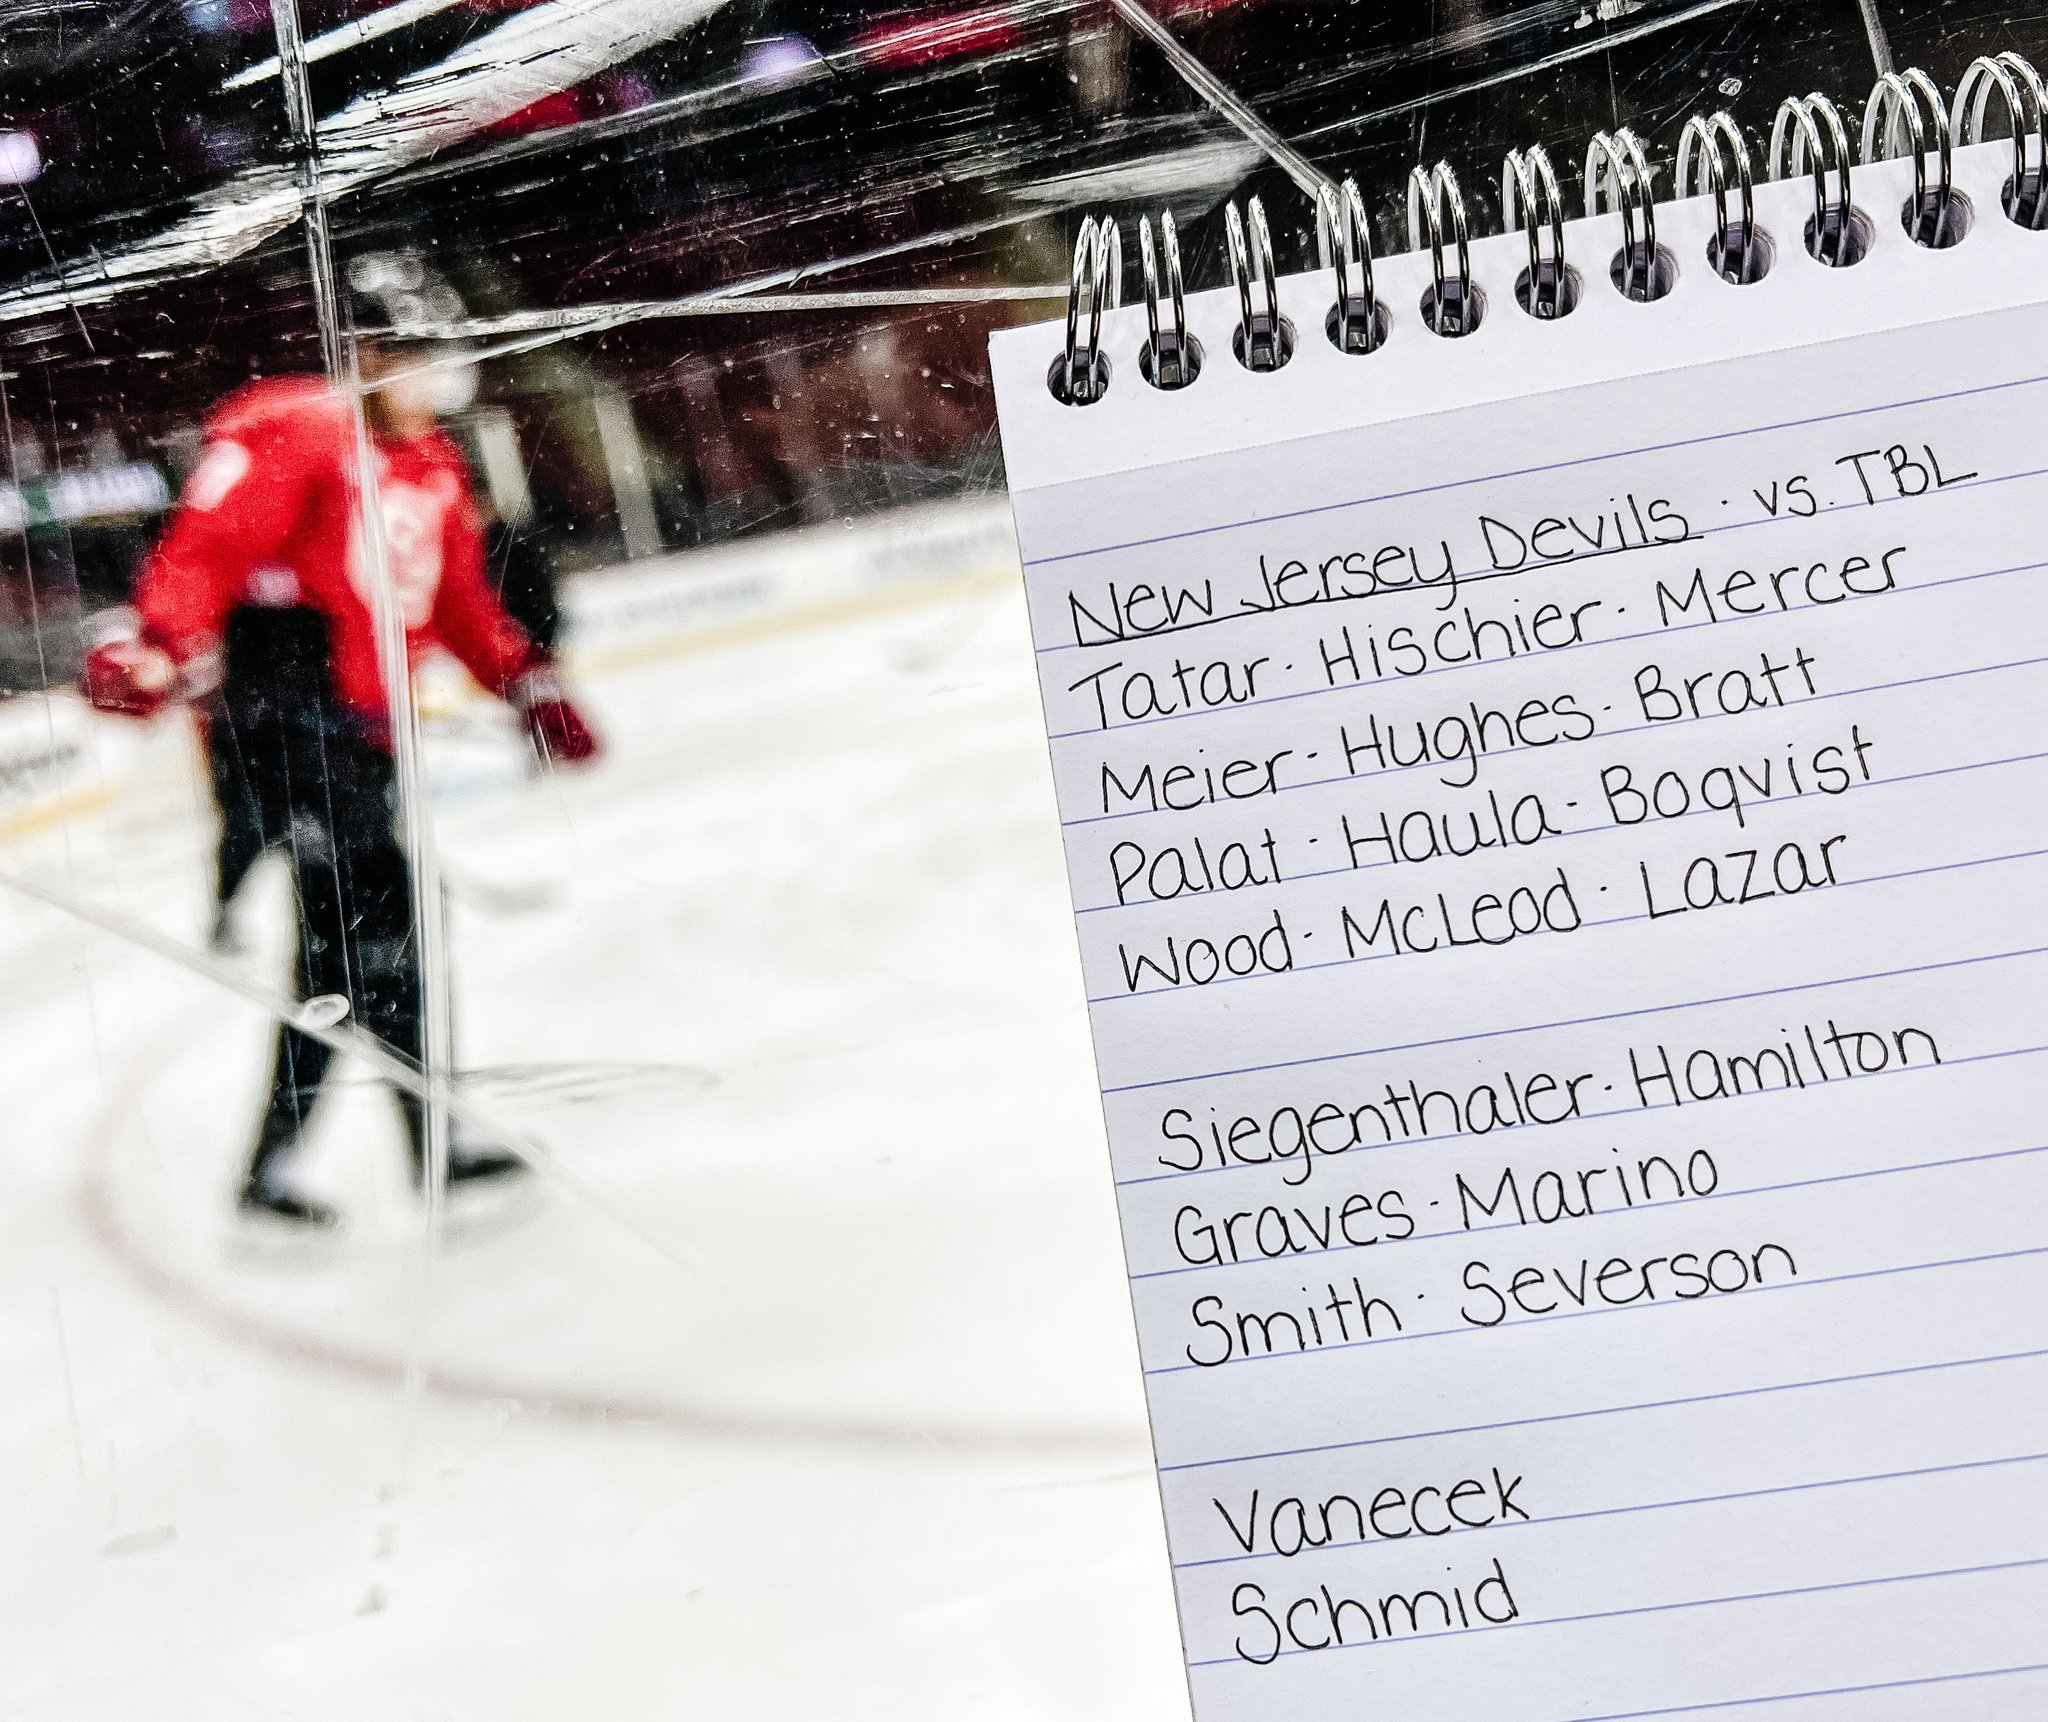 New Jersey Devils · vs. TBL
Tatar · Hischier · Mercer
Meier · Hughes · Bratt
Palat · Haula · Boqvist
Wood · McLeod · Lazar
Siegenthaler · Hamilton
Graves · Marino
Smith · Severson
Vanecek
Schmid